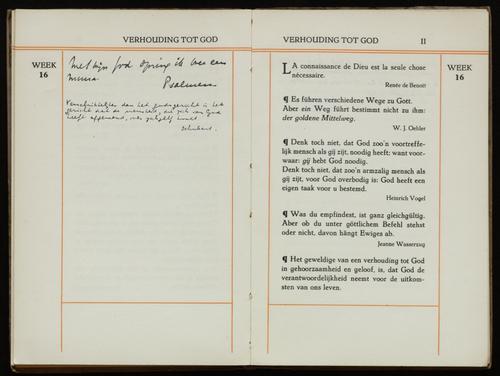 VERHOUDING TOT GOD
WEEK
16
Met mijn God spring ik over een
muur
Psalmen
Verschrikkelijker dan het godsgericht is het
gericht dat de mensheid, die zich van God
heeft afgewend, over zichzelf houdt
Schubart.
VERHOUDING TOT GOD II
WEEK
16
LA connaissance de Dieu est la seule chose
nécessaire.
Renée de Benoit
¶ Es führen verschiedene Wege zu Gott.
Aber ein Weg führt bestimmt nicht zu ihm:
der goldene Mittelweg.
W. J. Oehler
¶ Denk toch niet, dat God zoo'n voortreffe-
lijk mensch als gij zijt, noodig heeft: want voor-
waar: gij hebt God noodig.
Denk toch niet, dat zoo'n armzalig mensch als
gij zijt, voor God overbodig is: God heeft een
eigen taak voor u bestemd.
Heinrich Vogel
¶ Was du empfindest, ist ganz gleichgültig.
Aber ob du unter göttlichem Befehl stehst
oder nicht, davon hängt Ewiges ab.
Jeanne Wasserzug
¶ Het geweldige van een verhouding tot God
in gehoorzaamheid en geloof, is, dat God de
verantwoordelijkheid neemt voor de uitkom-
sten van ons leven.